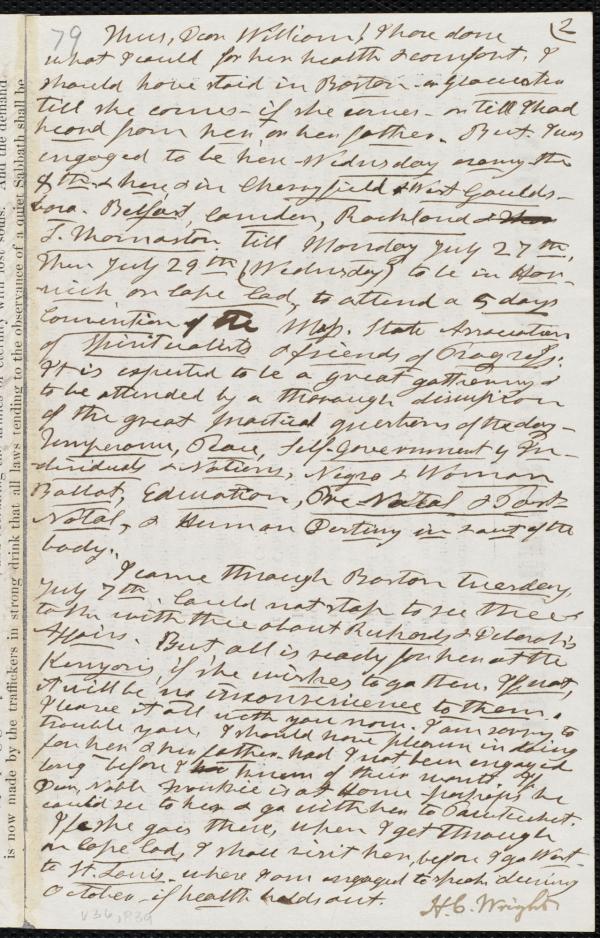 79
(2
Thus, Dear William! I have done
what I could for her health & comfort. I
should have staid in Boston - or Gloucester
till she comes - if she comes - or till I had
heard from her, or her father. But I was
engaged to be here - Wednesday evening the
8th & here & in Cherryfield & West Goulds-
boro. Belfast, Camden, Rockland &
S. Thomaston, till Monday July 27th,
Then July 29th (Wednesday) to be in Har-
wich on Cape Cod, to attend a 5 days
Convention of the Mass. State Association
of Spiritualists & friends of Progress.
It is expected to be a great gathering &
to be attended by a thorough discussion
of the great practical questions of the day -
Temperance, Peace, Self-Government of In-
dividuals & Nations, Negro & Woman
Ballot, Education, Pre-Natal & Post
Natal, & Human Destiny in & out of the
body.
I came through Boston Tuesday,
July 7th. Could not stop to see thee &
talk with thee about Richard's & Deborah's
Affairs. But, all is ready for her at the
Kenyons, if she wishes to go then. If not,
it will be no inconvenience to them.
I leave it all with you now. I am sorry to
trouble you. I should have pleasure in doing
for her & her father had I not been engaged
long before I knew of their wants. If
Dear, Noble Frankie is at Home - perhaps he
could see to her & go with her to Pawtucket.
If she goes there, when I get through
on Cape Cod, I shall visit her, before I go West -
to St. Louis - where I am engaged to speak during
October - if health holds out.
H. C. Wright
V36, P39
is now made by the traffickers in strong drink that all laws tending to the observance of a quiet Sabbath shall be
with lost souls. And the demand